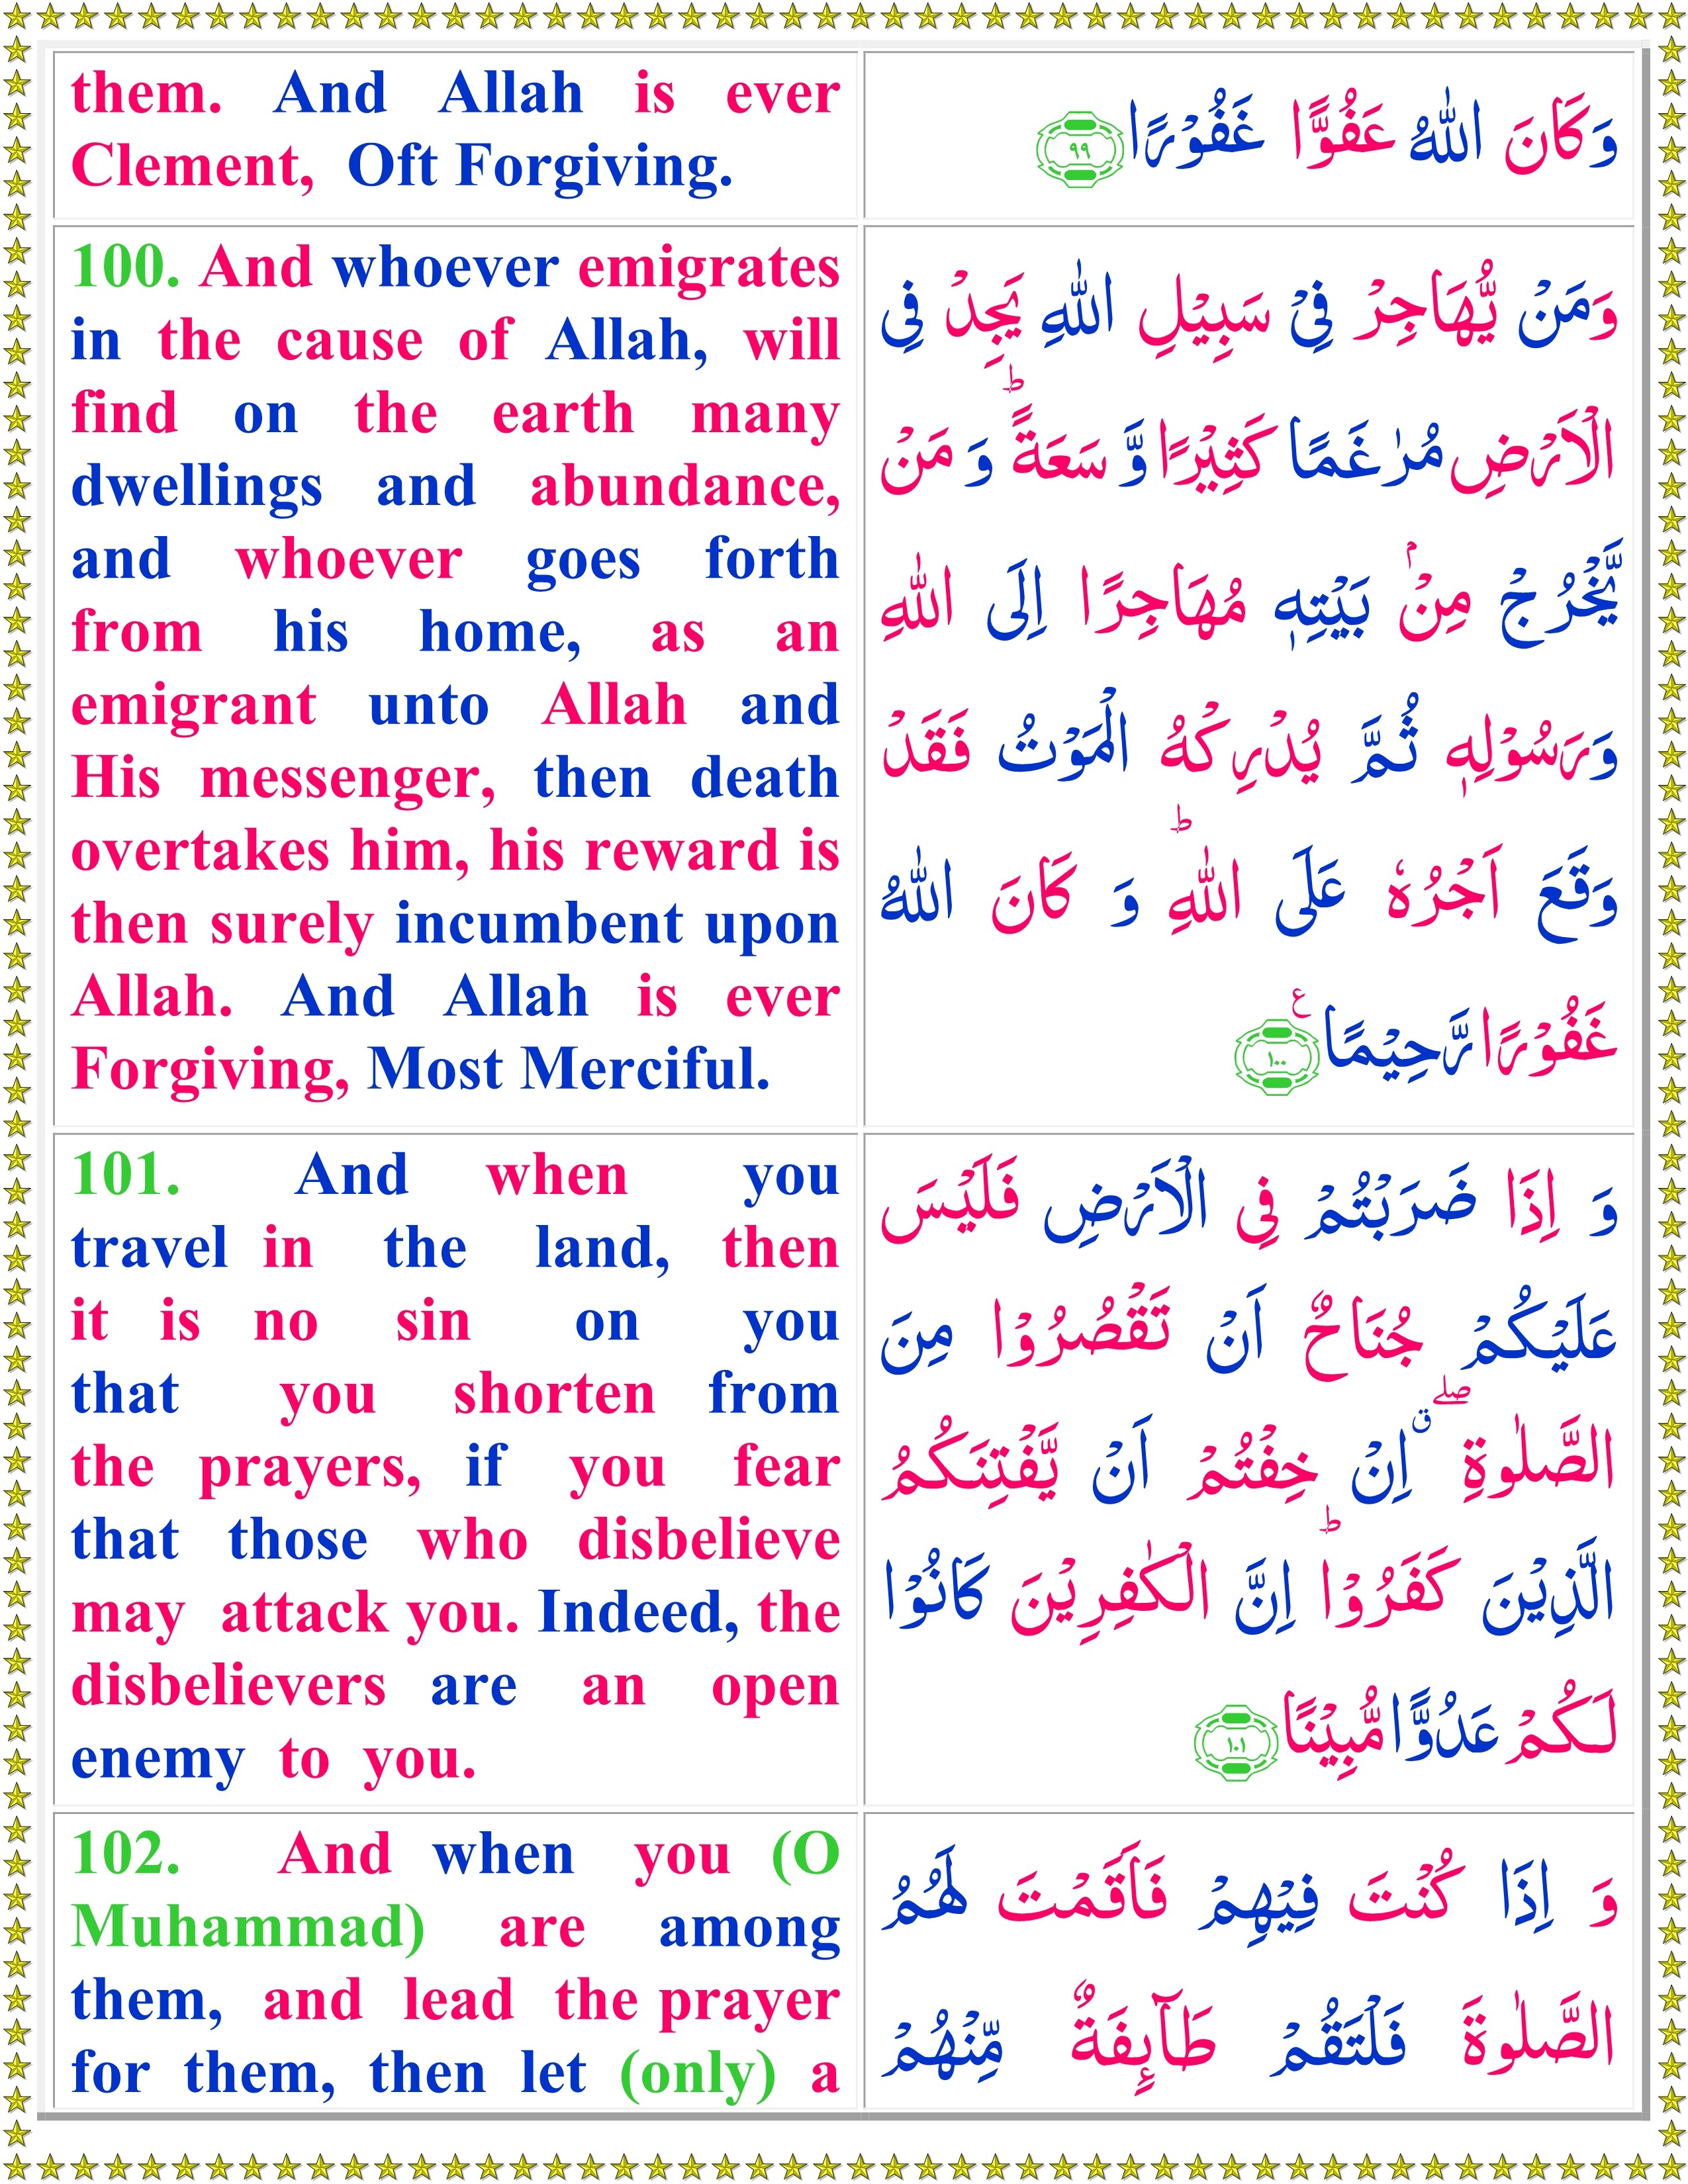 them. And Allah is ever
Clement, Oft Forgiving.
وَكَانَ اللّٰهُ عَفُوًّا غَفُوْرًا ٩٩
100. And whoever emigrates
in the cause of Allah, will
find on the earth many
dwellings and abundance,
and whoever goes forth
from his home, as an
emigrant unto Allah and
His messenger, then death
overtakes him, his reward is
then surely incumbent upon
Allah. And Allah is ever
Forgiving, Most Merciful.
وَمَنْ يُّهَاجِرْ فِيْ سَبِيْلِ اللّٰهِ يَجِدْ فِى
الْاَرْضِ مُرٰغَمًا كَثِيْرًا وَّ سَعَةً ؕ وَ مَنْ
يَّخْرُجْ مِنْۢ بَيْتِهٖ مُهَاجِرًا اِلَى اللّٰهِ
وَرَسُوْلِهٖ ثُمَّ يُدْرِكْهُ الْمَوْتُ فَقَدْ
وَقَعَ اَجْرُهٗ عَلَى اللّٰهِ ؕ وَ كَانَ اللّٰهُ
غَفُوْرًا رَّحِيْمًا ١٠٠ ع
101. And when you
travel in the land, then
it is no sin on you
that you shorten from
the prayers, if you fear
that those who disbelieve
may attack you. Indeed, the
disbelievers are an open
enemy to you.
وَ اِذَا ضَرَبْتُمْ فِى الْاَرْضِ فَلَيْسَ
عَلَيْكُمْ جُنَاحٌ اَنْ تَقْصُرُوْا مِنَ
الصَّلٰوةِ ۖ ق اِنْ خِفْتُمْ اَنْ يَّفْتِنَكُمُ
الَّذِيْنَ كَفَرُوْا ؕ اِنَّ الْكٰفِرِيْنَ كَانُوْا
لَـكُمْ عَدُوًّا مُّبِيْنًا ١٠١
102. And when you (O
Muhammad) are among
them, and lead the prayer
for them, then let (only) a
وَ اِذَا كُنْتَ فِيْهِمْ فَاَقَمْتَ لَهُمُ
الصَّلٰوةَ فَلْتَقُمْ طَآٮِٕفَةٌ مِّنْهُمْ